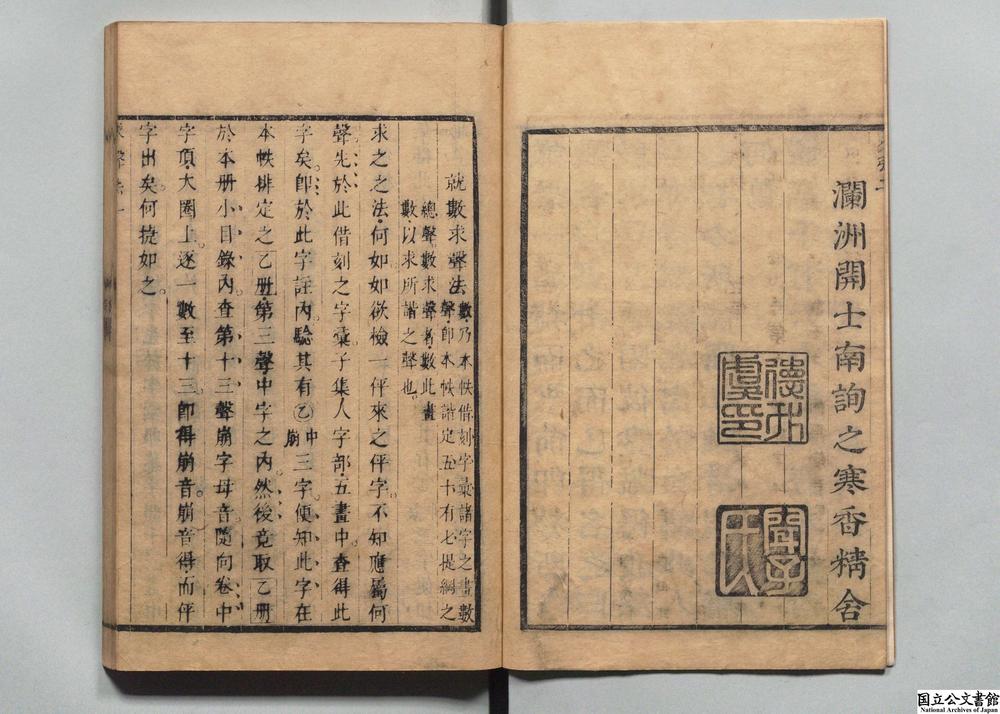 瀾洲開士南詢之寒香精舍
就數求聲法
數乃本帙借刻字彙諸字之畫數
聲卽本帙諧定五十有七提綱之
總聲數求聲者數此畫
數以求所諧之聲也
求之之法何如如欲檢一伻來之伻字不知應屬何
聲先於此借刻之字彙子集人字部五畫中查得此
字矣卽於此字註內驗其有乙中崩三字便知此字在
本帙排定之乙册第三聲中字之內然後竟取乙册
於本册小目錄內查第十三聲崩字母音隨向卷中
字頂大圈上逐一數至十三卽得崩音崩音得而伻
字出矣何捷如之
国立公文書館
National Archives of Japan